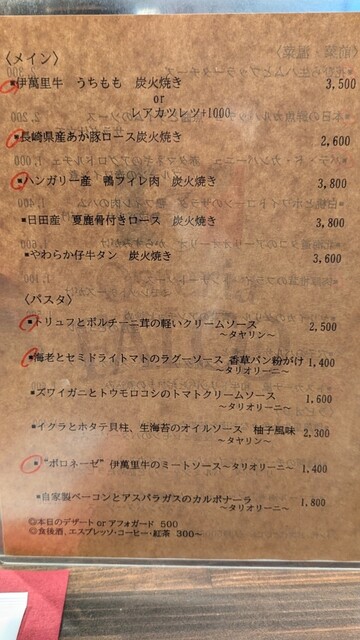 〈メイン〉
▪伊萬里牛 うちもも 炭火焼き 3,500
or
レアカツレツ+1000
▪長崎県産あか豚ロース炭火焼き 2,600
▪ハンガリー産 鴨フィレ肉 炭火焼き 3,800
▪日田産 夏鹿骨付きロース 炭火焼き 3,800
▪やわらか仔牛タン 炭火焼き 3,600
〈パスタ〉
▪トリュフとポルチーニ茸の軽いクリームソース 2,500
～タヤリン～
▪海老とセミドライトマトのラグーソース 香草パン粉がけ 1,400
～タリオリーニ～
▪ズワイガニとトウモロコシのトマトクリームソース 1,600
～タリオリーニ～
▪イクラとホタテ貝柱、生海苔のオイルソース 柚子風味 2,300
～タヤリン～
▪“ボロネーゼ”伊萬里牛のミートソース～タリオリーニ～ 1,400
▪自家製ベーコンとアスパラガスのカルボナーラ 1,800
～タリオリーニ～
◎本日のデザート or アフォガード 500
◎食後酒、エスプレッソ・コーヒー・紅茶 300～